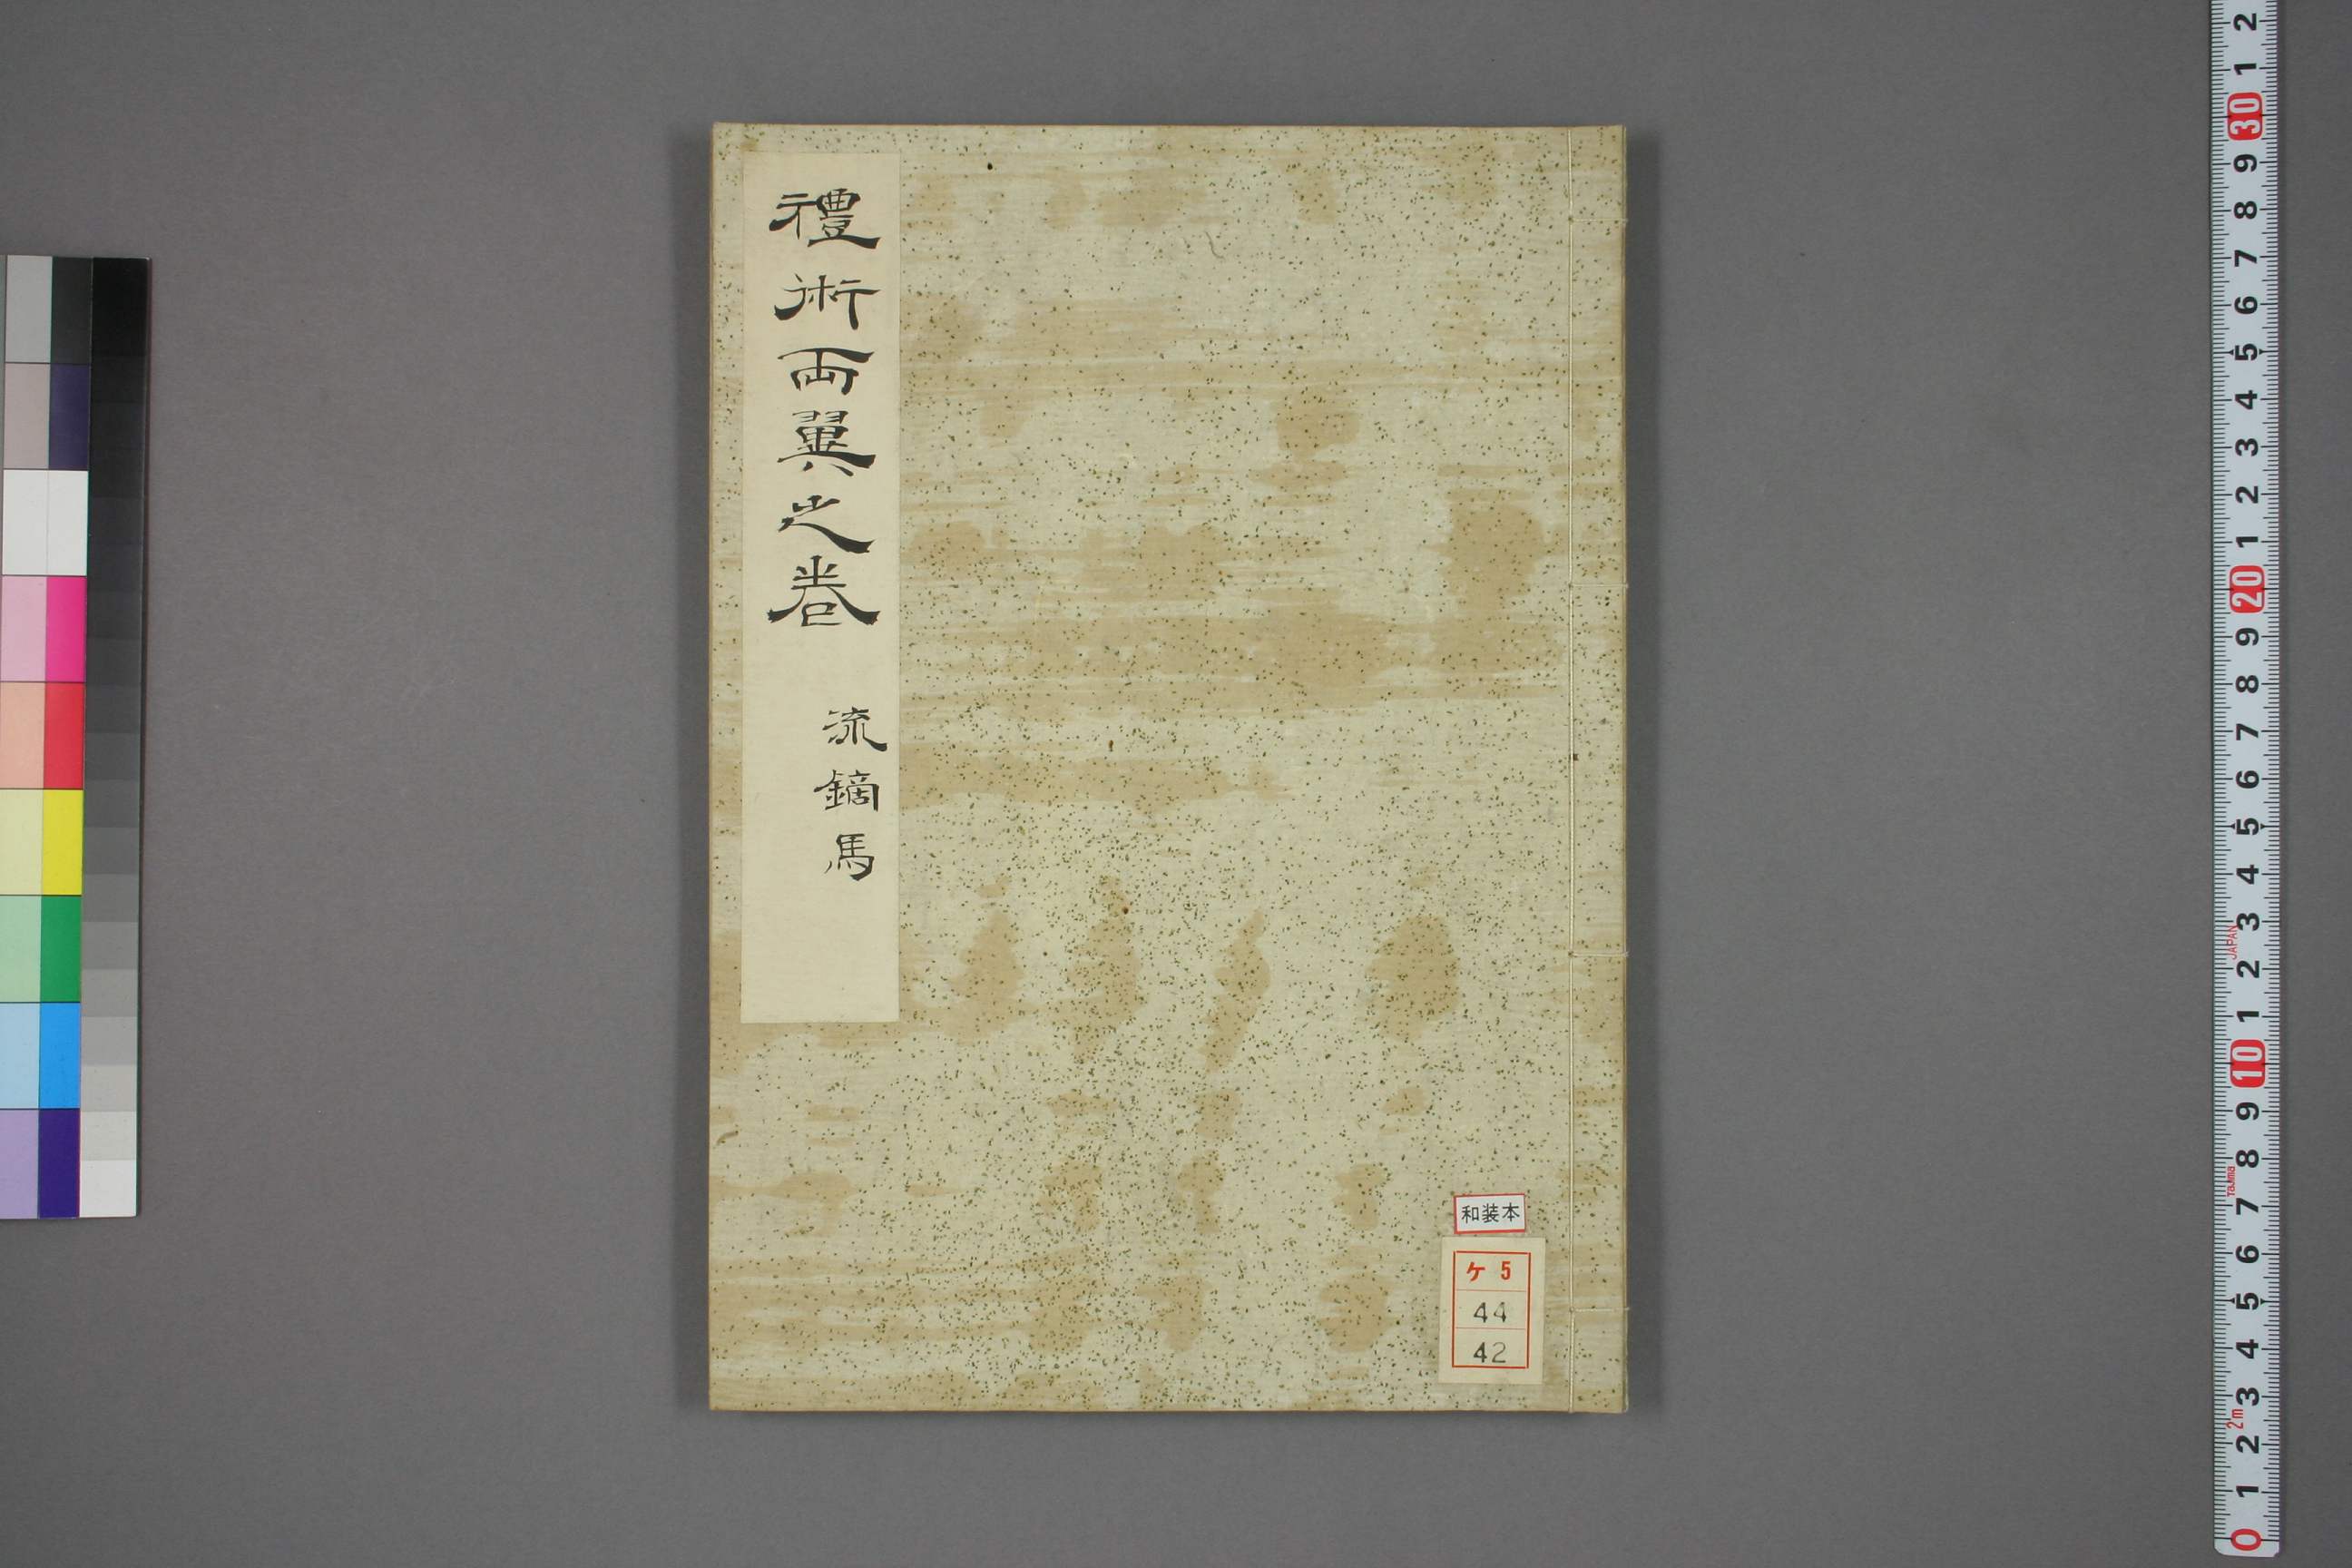 禮術両翼之巻
流鏑馬
和装本
ケ 5
44
42
2 1 30 9 8 7 6 5 4 3 2 1 20 9 8 7 6 5 4 3 2 1 10 9 8 7 6 5 4 3 2 1 0
JAPAN
Tajima
2m